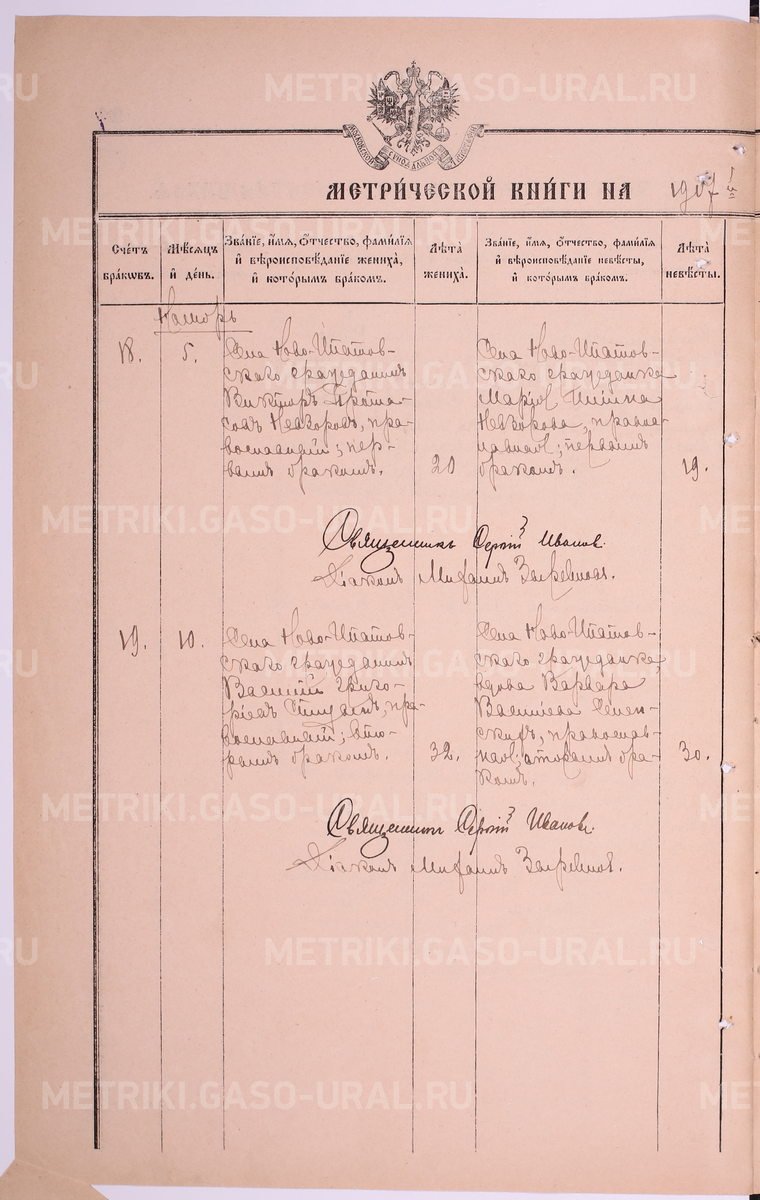 МЕТРИ́ЧЕСКОЙ КНИ́ГИ НА 1917
Сче́тъ бра́кѡвъ.
Мѣ́сяцъ и҆ де́нь.
Зва́нїе, и҆́мя, ѻ҆́тчество, фами́лїя и҆ вѣроисповѣ́данїе жениха̀, и҆ кото́рымъ бра́комъ.
Лѣта̀ жениха̀.
Зва́нїе, и҆́мя, ѻ҆́тчество, фами́лїя и҆ вѣроисповѣ́данїе невѣ́сты, и҆ кото́рымъ бра́комъ.
Лѣта̀ невѣ́сты.
Ноябрь
18.
5.
Села Ново-Ипатов-
скаго гражданинъ
Викторъ
Невзоровъ, пра-
вославный; пер-
вымъ бракомъ.
20
Села Ново-Ипатов-
скаго гражданка
Невзорова, правосл-
авная; первымъ
бракомъ.
19.
Священникъ Сергій Иванов.
Діаконъ
19.
10.
Села Ново-Ипатов-
скаго гражданинъ
Василій Григо-
рьевъ пра-
вославный; вто-
рымъ бракомъ.
32.
Села Ново-Ипатов-
скаго гражданка,
вдова Варвара
Васильева
православ-
ная; вторымъ бра-
комъ.
30.
Священникъ Сергій Иванов.
Діаконъ
METRIKI.GASO-URAL.RU